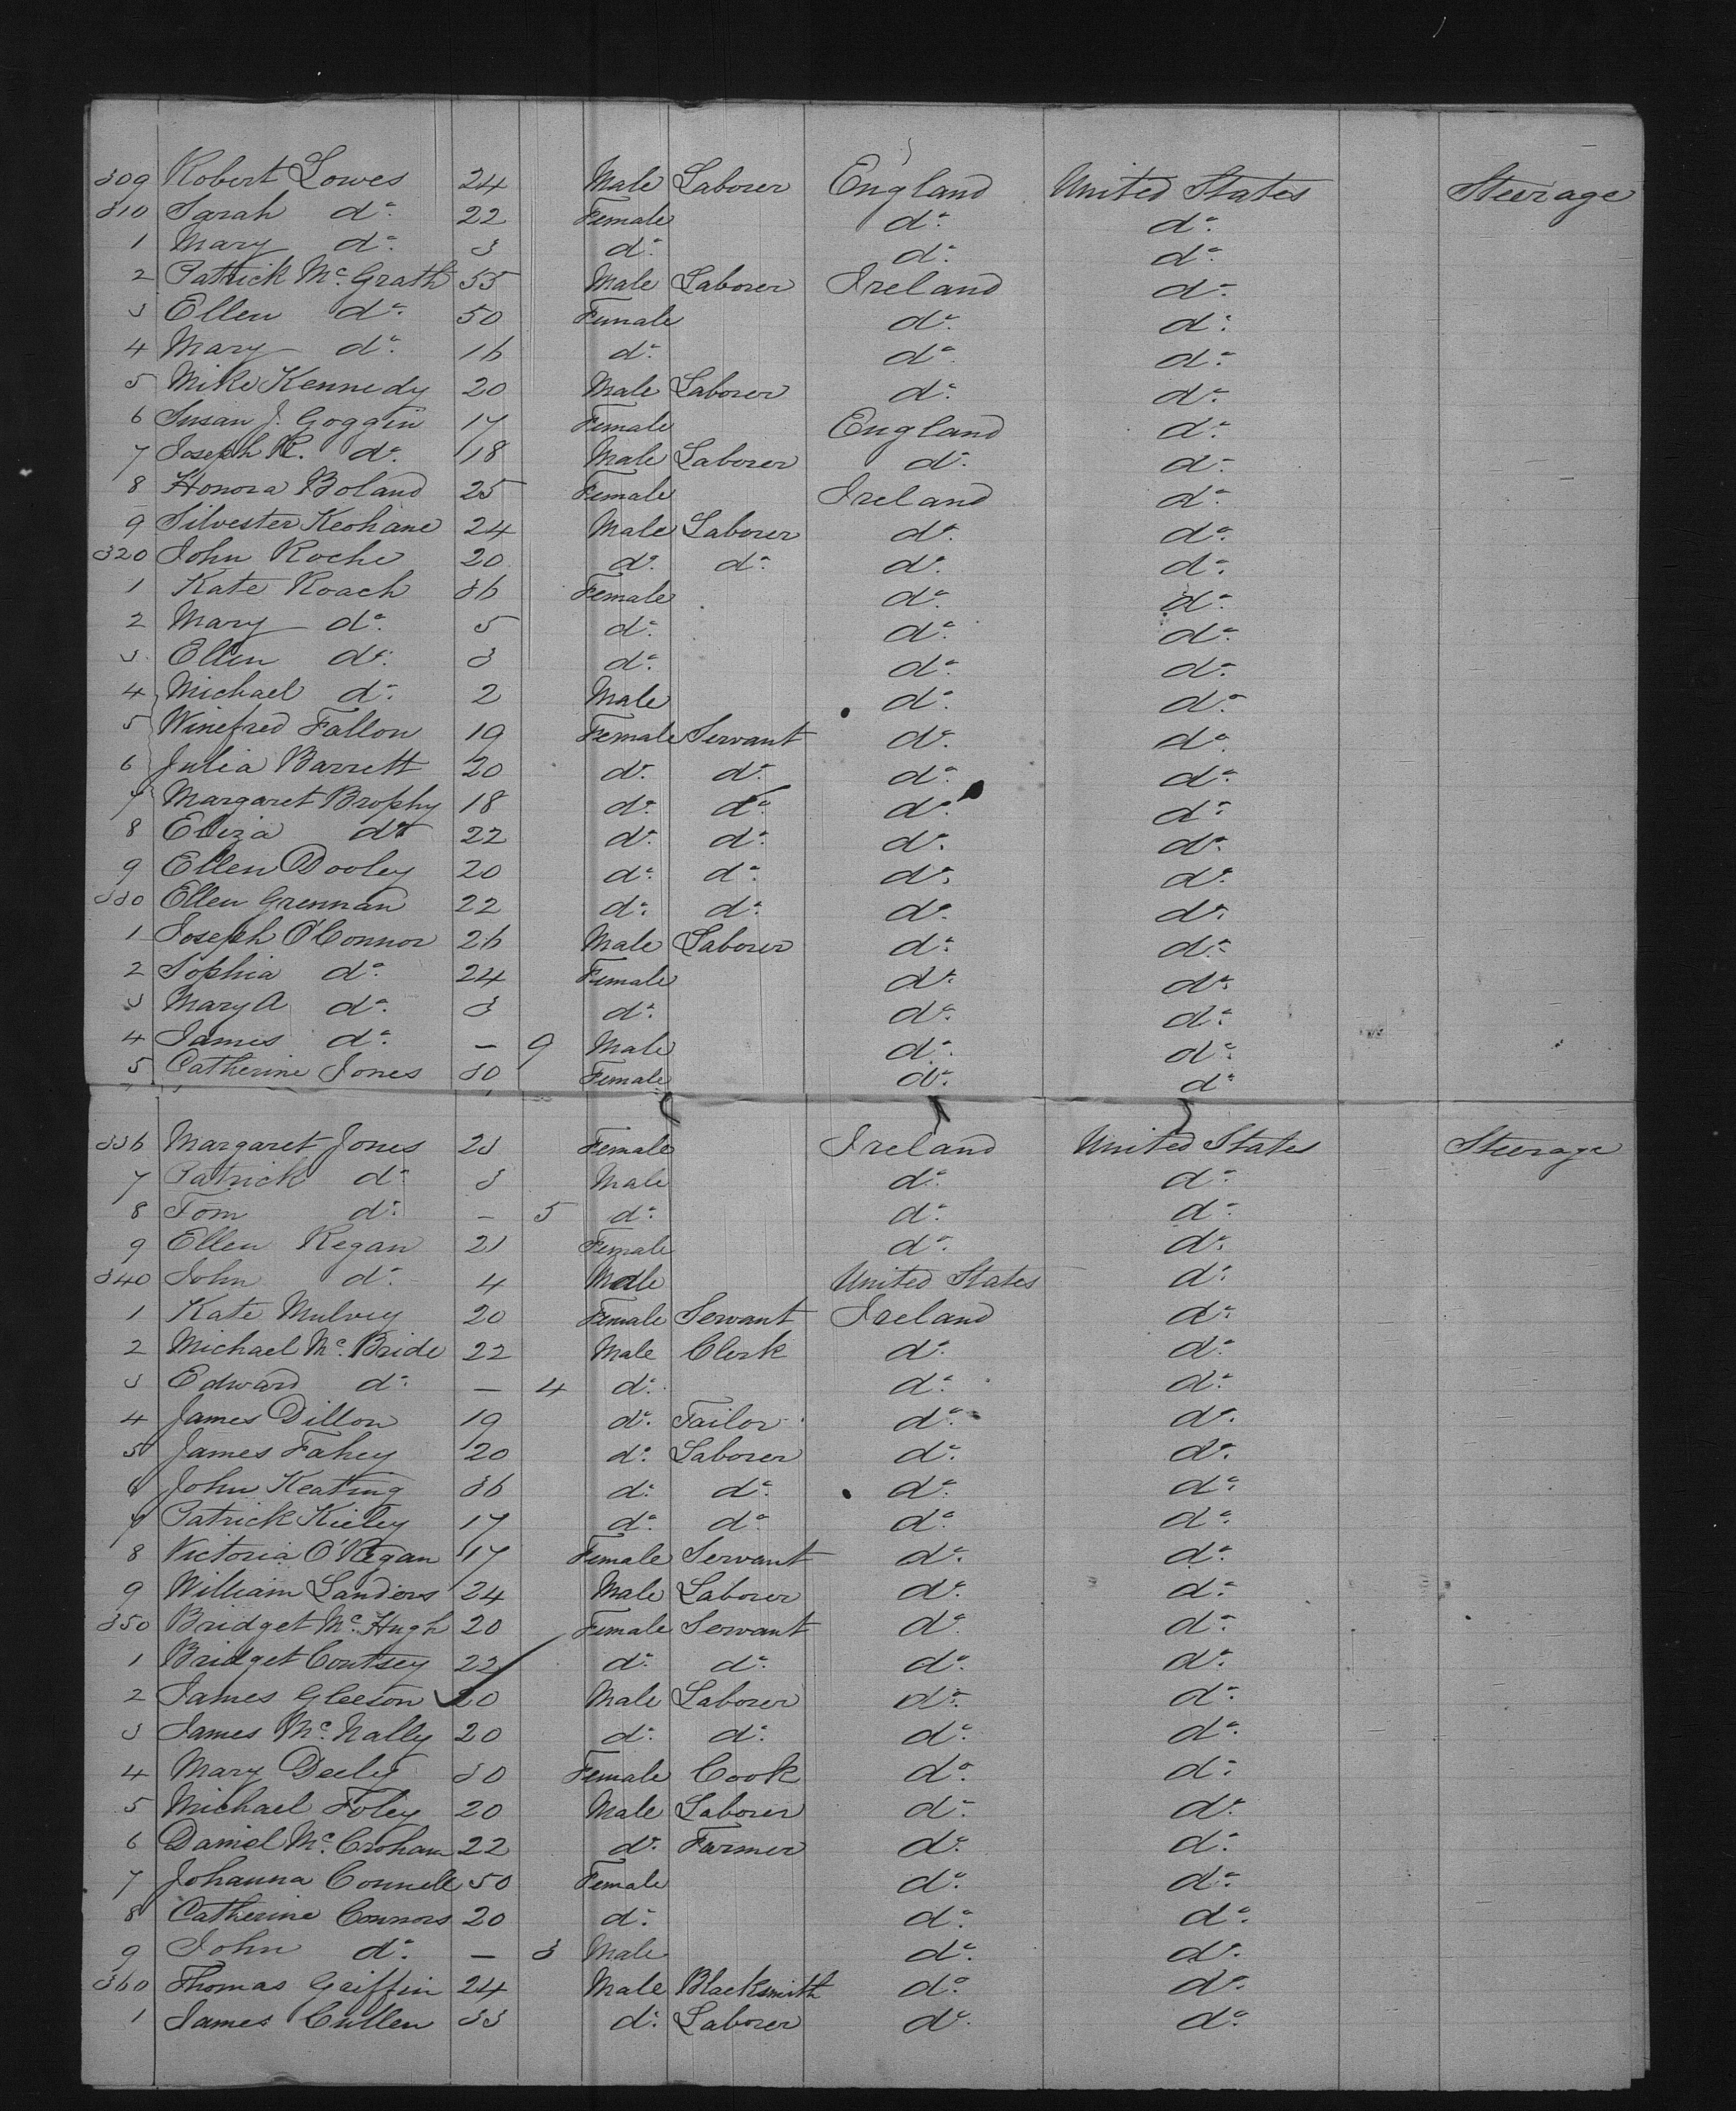 309 Robert Lowes 24 Male Laborer England United States Steerage
310 Sarah do. 22 Female do. do.
1 Mary do. 3 do. do. do.
2 Patrick Mc. Grath 55 Male Laborer Ireland do.
3 Ellen do. 50 Female do. do.
4 Mary do. 16 do. do. do.
5 Mike Kennedy 20 Male Laborer do. do.
6 Susan J. Goggin 17 Female England do.
7 Joseph R. do. 18 Male Laborer do. do.
8 Honora Boland 25 Female Ireland do.
9 Silvester Keohane 24 Male Laborer do. do.
320 John Roche 20 do. do. do. do.
1 Kate Roach 36 Female do. do.
2 Mary do. 5 do. do. do.
3 Ellen do. 3 do. do. do.
4 Michael do. 2 Male do. do.
5 Winefred Fallon 19 Female Servant do. do.
6 Julia Barrett 20 do. do. do. do.
7 Margaret Brophy 18 do. do. do. do.
8 Eliza do. 22 do. do. do. do.
9 Ellen Dooley 20 do. do. do. do.
330 Ellen Grennan 22 do. do. do. do.
1 Joseph O'Connor 26 Male Laborer do. do.
2 Sophia do. 24 Female do. do.
3 Mary A do. 3 do. do. do.
4 James do. – 9 Male do. do.
5 Catherine Jones 30 Female do. do.
336 Margaret Jones 23 Female Ireland United States Steerage
7 Patrick do. 3 Male do. do.
8 Tom do. – 5 do. do. do.
9 Ellen Regan 21 Female do. do.
340 John do. 4 Male United States do.
1 Kate Mulvey 20 Female Servant Ireland do.
2 Michael Mc. Bride 22 Male Clerk do. do.
3 Edward do. – 4 do. do. do.
4 James Dillon 19 do. Tailor do. do.
5 James Fahey 20 do. Laborer do. do.
6 John Keating 36 do. do. do. do.
7 Patrick Kieley 17 do. do. do. do.
8 Victoria O'Regan 17 Female Servant do. do.
9 William Landers 24 Male Laborer do. do.
350 Bridget Mc. Hugh 20 Female Servant do. do.
1 Bridget Courtsey 22 do. do. do. do.
2 James Gleeson 20 Male Laborer do. do.
3 James Mc. Nally 20 do. do. do. do.
4 Mary Deely 30 Female Cook do. do.
5 Michael Foley 20 Male Laborer do. do.
6 Daniel Mc. Crohan 22 do. Farmer do. do.
7 Johanna Connell 50 Female do. do.
8 Catherine Connors 20 do. do. do.
9 John do. – 3 Male do. do.
360 Thomas Griffin 24 Male Blacksmith do. do.
1 James Cullen 33 do. Laborer do. do.